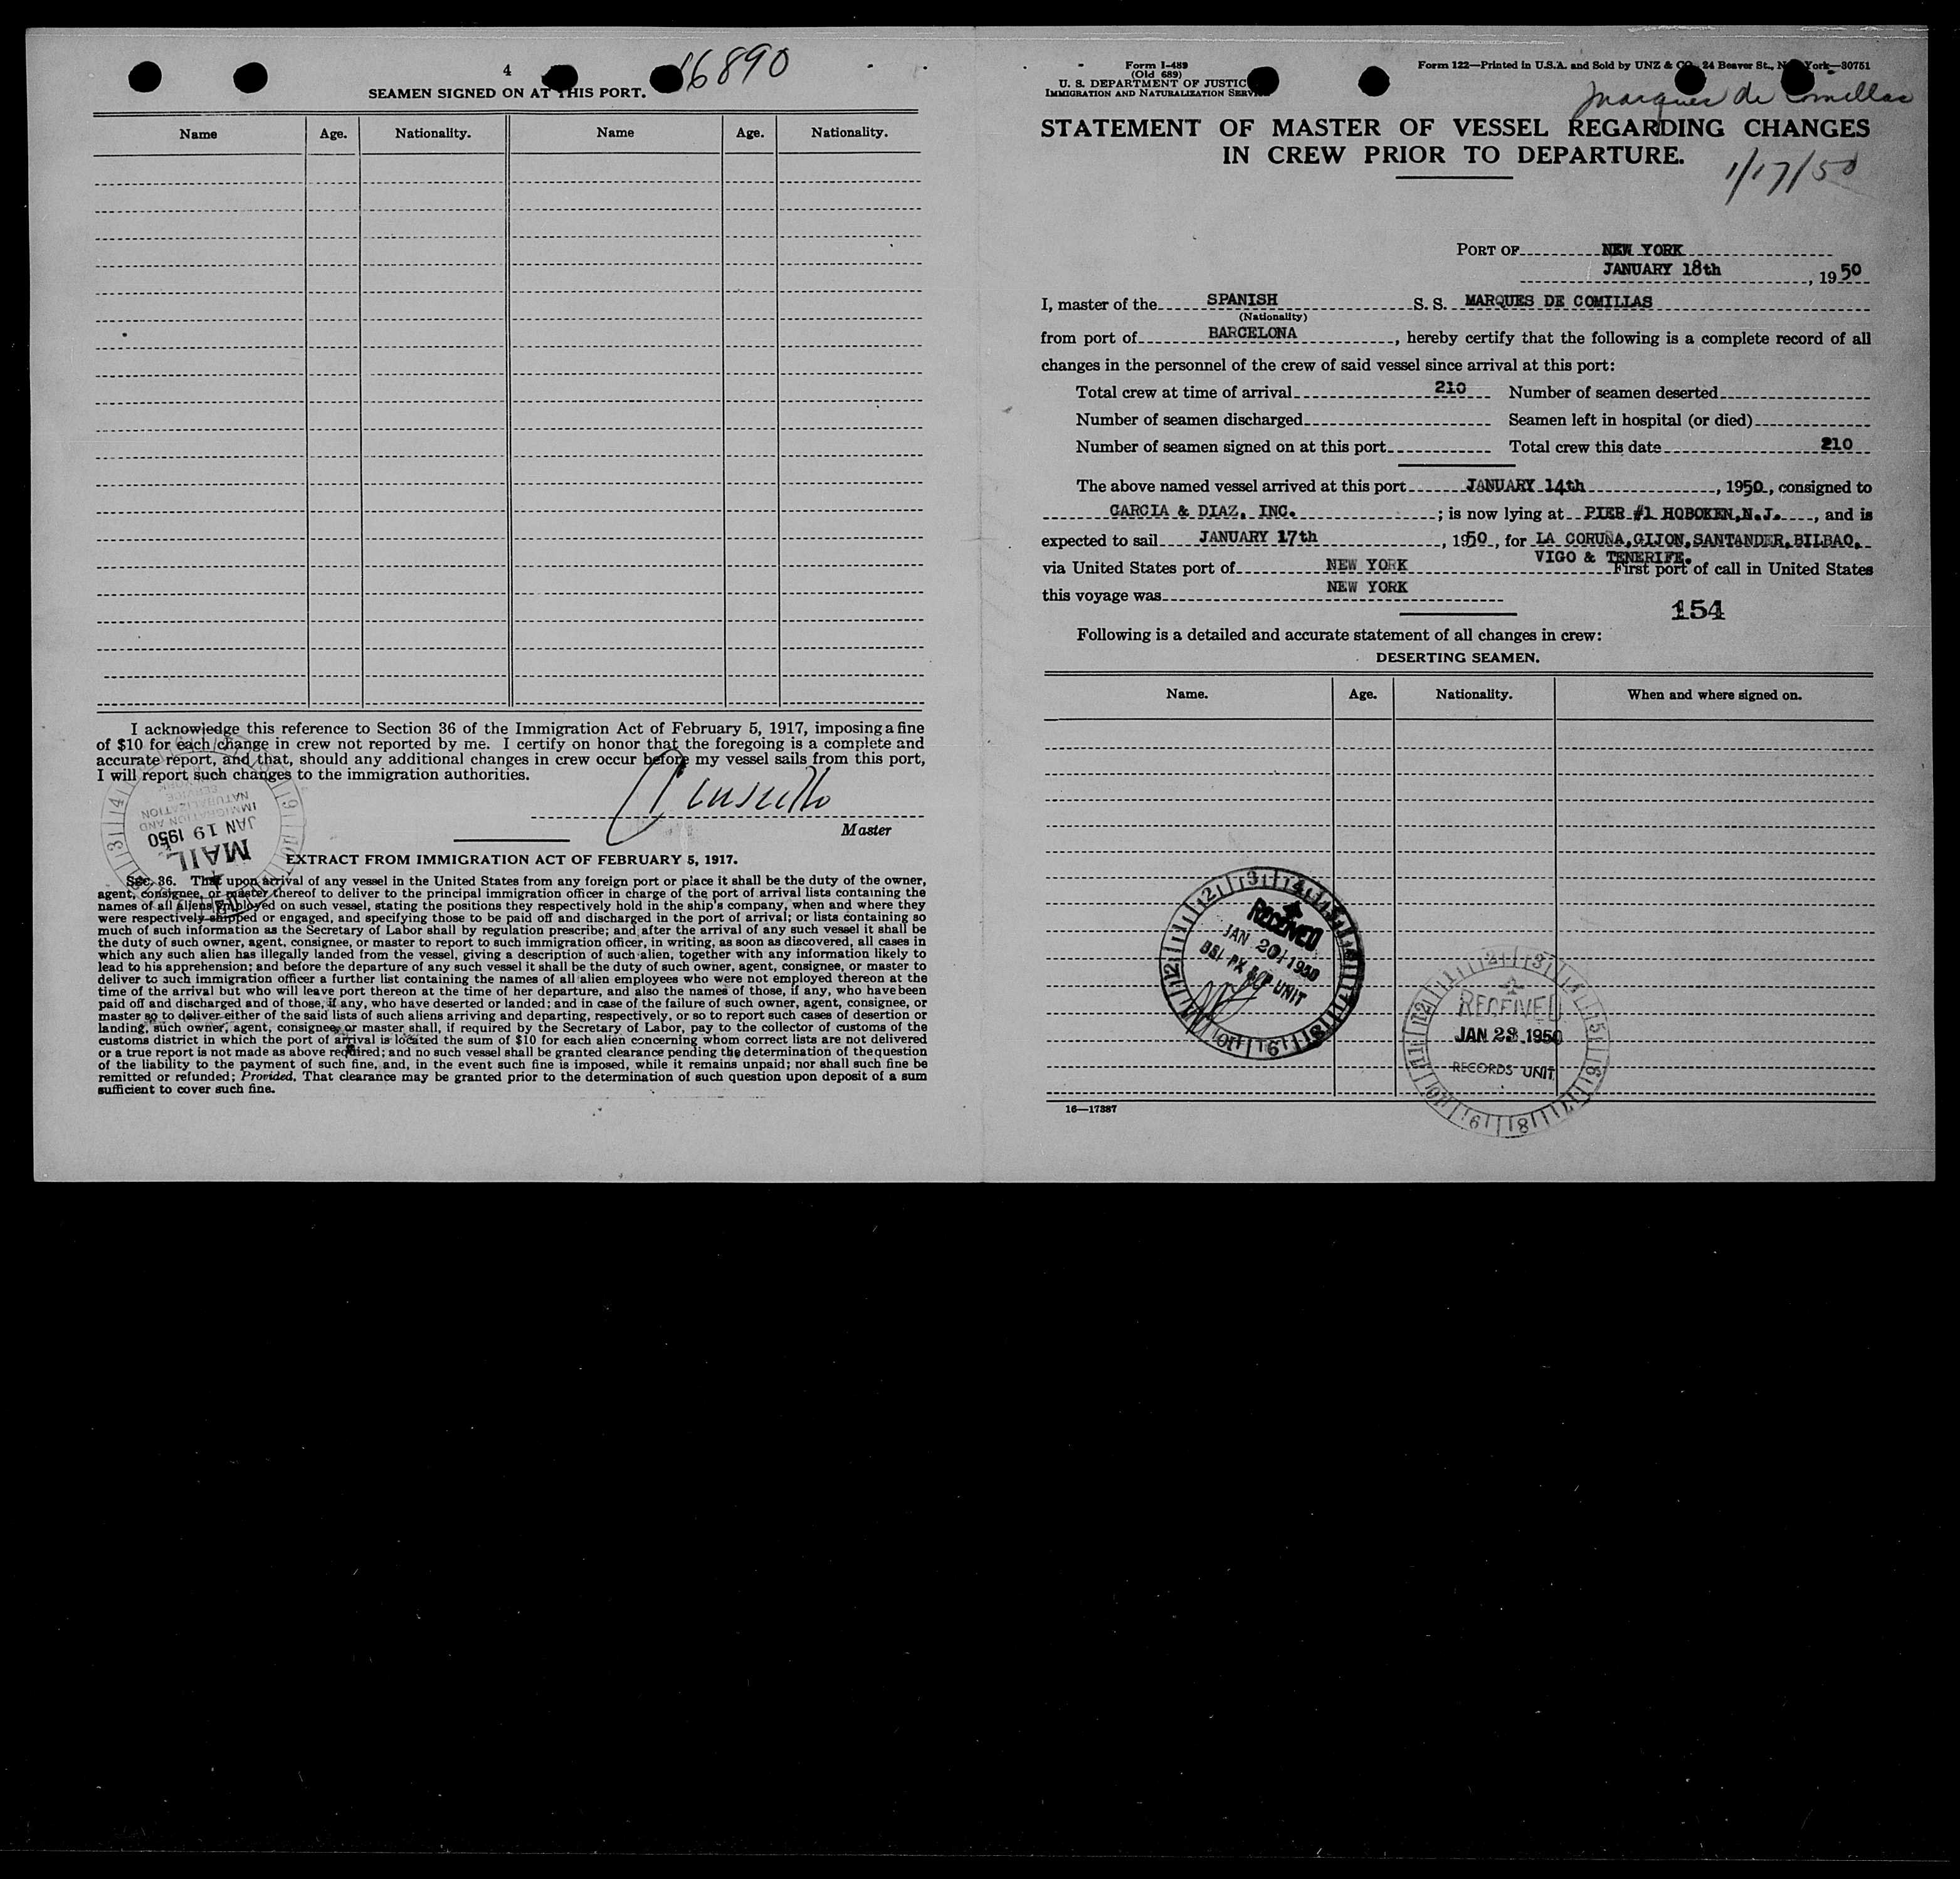 4
16890
SEAMEN SIGNED ON AT THIS PORT.
Name Age. Nationality. Name Age. Nationality.
I acknowledge this reference to Section 36 of the Immigration Act of February 5, 1917, imposing a fine
of $10 for each change in crew not reported by me. I certify on honor that the foregoing is a complete and
accurate report, and that, should any additional changes in crew occur before my vessel sails from this port,
I will report such changes to the immigration authorities.
Master
IMMIGRATION AND
NATURALIZATION
SERVICE
JAN 19 1950
MAIL
EXTRACT FROM IMMIGRATION ACT OF FEBRUARY 5, 1917.
Sec. 36. That upon arrival of any vessel in the United States from any foreign port or place it shall be the duty of the owner,
agent, consignee, or master thereof to deliver to the principal immigration officer in charge of the port of arrival lists containing the
names of all aliens employed on such vessel, stating the positions they respectively hold in the ship's company, when and where they
were respectively shipped or engaged, and specifying those to be paid off and discharged in the port of arrival; or lists containing so
much of such information as the Secretary of Labor shall by regulation prescribe; and after the arrival of any such vessel it shall be
the duty of such owner, agent, consignee, or master to report to such immigration officer, in writing, as soon as discovered, all cases in
which any such alien has illegally landed from the vessel, giving a description of such alien, together with any information likely to
lead to his apprehension; and before the departure of any such vessel it shall be the duty of such owner, agent, consignee, or master to
deliver to such immigration officer a further list containing the names of all alien employees who were not employed thereon at the
time of the arrival but who will leave port thereon at the time of her departure, and also the names of those, if any, who have been
paid off and discharged and of those, if any, who have deserted or landed; and in case of the failure of such owner, agent, consignee, or
master so to deliver either of the said lists of such aliens arriving and departing, respectively, or so to report such cases of desertion or
landing, such owner, agent, consignee, or master shall, if required by the Secretary of Labor, pay to the collector of customs of the
customs district in which the port of arrival is located the sum of $10 for each alien concerning whom correct lists are not delivered
or a true report is not made as above required; and no such vessel shall be granted clearance pending the determination of the question
of the liability to the payment of such fine, and, in the event such fine is imposed, while it remains unpaid; nor shall such fine be
remitted or refunded; Provided, That clearance may be granted prior to the determination of such question upon deposit of a sum
sufficient to cover such fine.
Form I-489
(Old 689)
U. S. DEPARTMENT OF JUSTICE
IMMIGRATION AND NATURALIZATION SERVICE
Form 122—Printed in U.S.A. and Sold by UNZ & CO., 24 Beaver St., New York—30751
Marques de Comillas
STATEMENT OF MASTER OF VESSEL REGARDING CHANGES
IN CREW PRIOR TO DEPARTURE.
1/17/50
PORT OF NEW YORK
JANUARY 18th, 1950
I, master of the SPANISH S. S. MARQUES DE COMILLAS
(Nationality)
from port of BARCELONA, hereby certify that the following is a complete record of all
changes in the personnel of the crew of said vessel since arrival at this port:
Total crew at time of arrival 210 Number of seamen deserted
Number of seamen discharged Seamen left in hospital (or died)
Number of seamen signed on at this port Total crew this date 210
The above named vessel arrived at this port JANUARY 14th, 1950, consigned to
GARCIA & DIAZ, INC.; is now lying at PIER #1 HOBOKEN,N.J., and is
expected to sail JANUARY 17th, 1950, for LA CORUÑA,GIJON,SANTANDER,BILBAO,
VIGO & TENERIFE.
via United States port of NEW YORK First port of call in United States
this voyage was NEW YORK
154
Following is a detailed and accurate statement of all changes in crew:
DESERTING SEAMEN.
Name. Age. Nationality. When and where signed on.
RECEIVED
JAN 20 1950
UNIT
RECEIVED
JAN 23 1950
RECORDS UNIT
16—17387